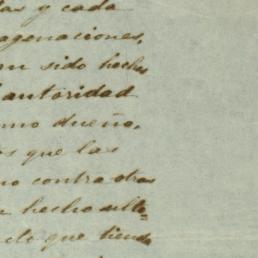 y cada
agenaciones,
n sido hechas
autoridad
mo dueño,
os que las
no contra otras
hecho
que tienda